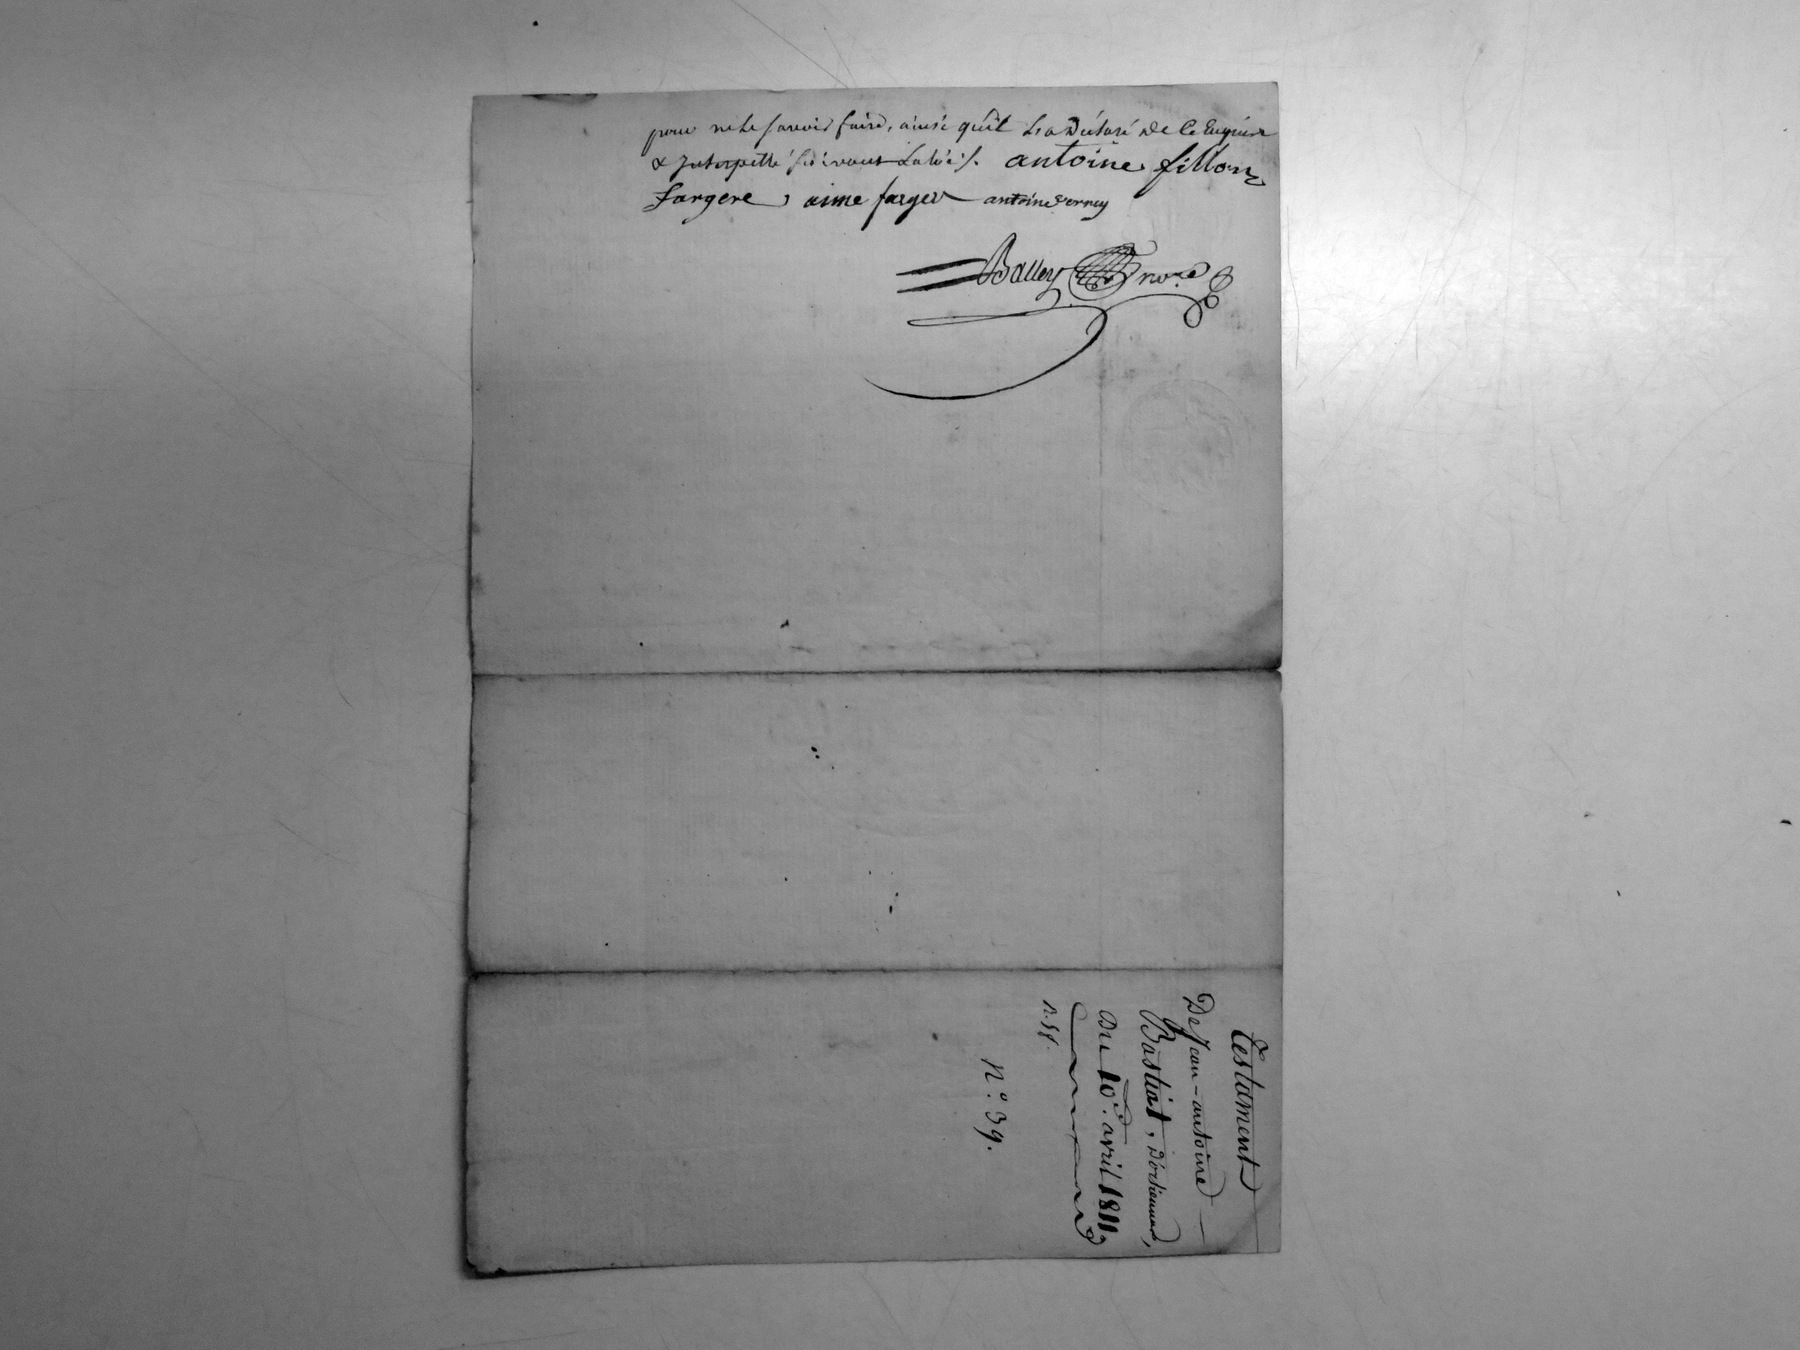 pour ne le savoir faire, ainsi qu'il l'a déclaré de ce Enquis
& Interpellé suivant La loi /. antoine fillon
fargere aime farger antoine verney
Balley nore
Testament
De Jean-antoine
Bastiat,
Du 10e. avril 1811
n. 
n.° 39.